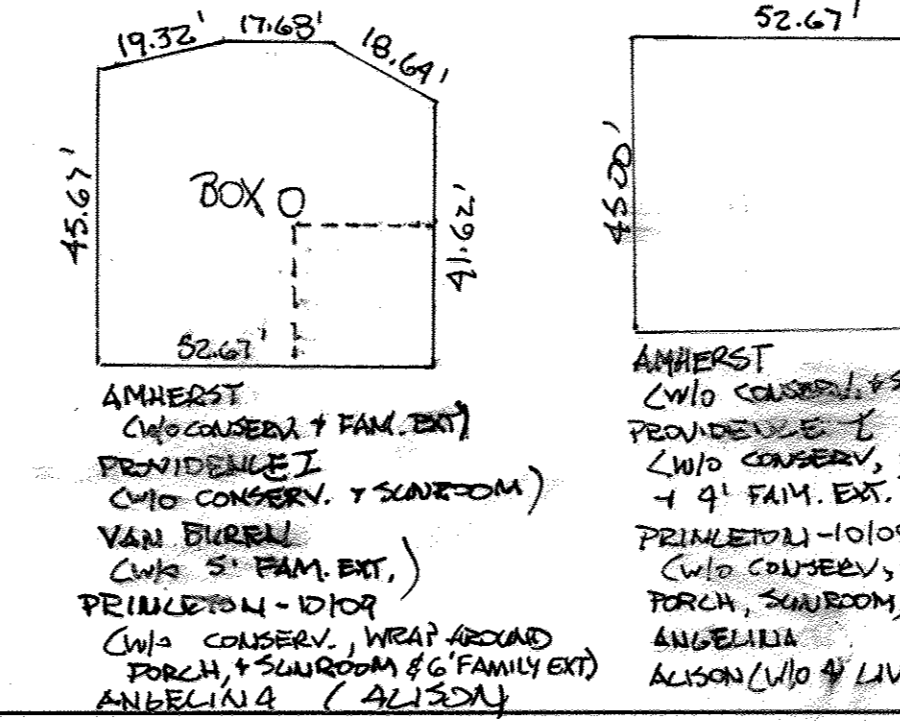 19.32' 17.68' 18.64'
45.67'
BOX O
41.62'
52.67'
AMHERST
(W/O CONSERV. & FAM. EXT)
PROVIDENCE I
(W/O CONSERV. & SUNROOM)
VAN BUREN
(W/O 5' FAM. EXT.)
PRINCETON - 10/09
(W/O CONSERV., WRAP AROUND
PORCH, & SUNROOM & 6' FAMILY EXT)
ANGELINA (ALISON
52.67'
45.00'
AMHERST
(W/O CONSERV. & S
PROVIDENCE I
(W/O CONSERV,
4' FAM. EXT.
PRINCETON - 10/09
(W/O CONSERV,
PORCH, SUNROOM,
ANGELINA
ALISON (W/O 4' LIV